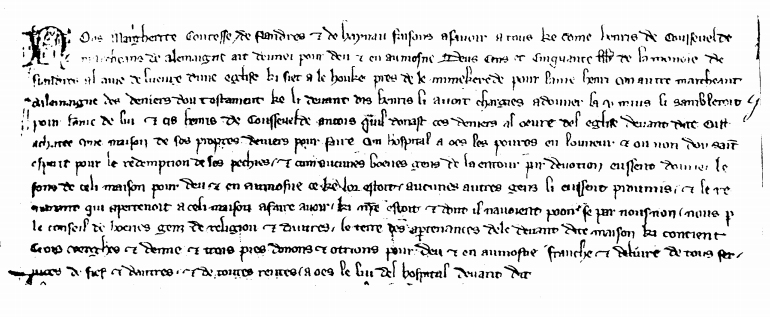 Nos Margherite Contesse de Flandres & de haynau faisons asavoir a tous ke come henris de Coussevelde
marcheans de alemaigne ait donnei pour deu & en aumosne Deus Cens et Cinquante de la monoie de
flandres al oeuvre dune eglise ki siet a le houke pres de le pour lame henri on autre marcheant
dalemaigne des deniers dou testament ke li devant dis henris li avoit chargiés a donner la u mius li sambleroit
pour lame de lui & cis henris de Coussevelde ancois quil donast ces deniers al oevre del eglise devant dite eust
achatee une maison de ses propres deniers pour faire un hospital a oes les povres en lonneur & ou non dou saint
esperit pour le redemption de ses pechies & aucunes boenes gens de la entour par devotion eussent donnei le
fons de celi maison pour deu & en aumosne ce ke lor estoit aucunes autres gens li eussent & le re
manant qui apertenoit a celi maison afaire avoir ki estoit & dont il navoient pooir se par nous non nous par
le conseil de boenes gens de religion & dautres le terre des apertenances de le devant dite maison ki contient
trois verghes & demie & trois pies donons & otrions pour deu & en aumosne franche & delivre de tous ser
vices de fief & dautres & de toutes rentes a oes le liu del hospital devant dit